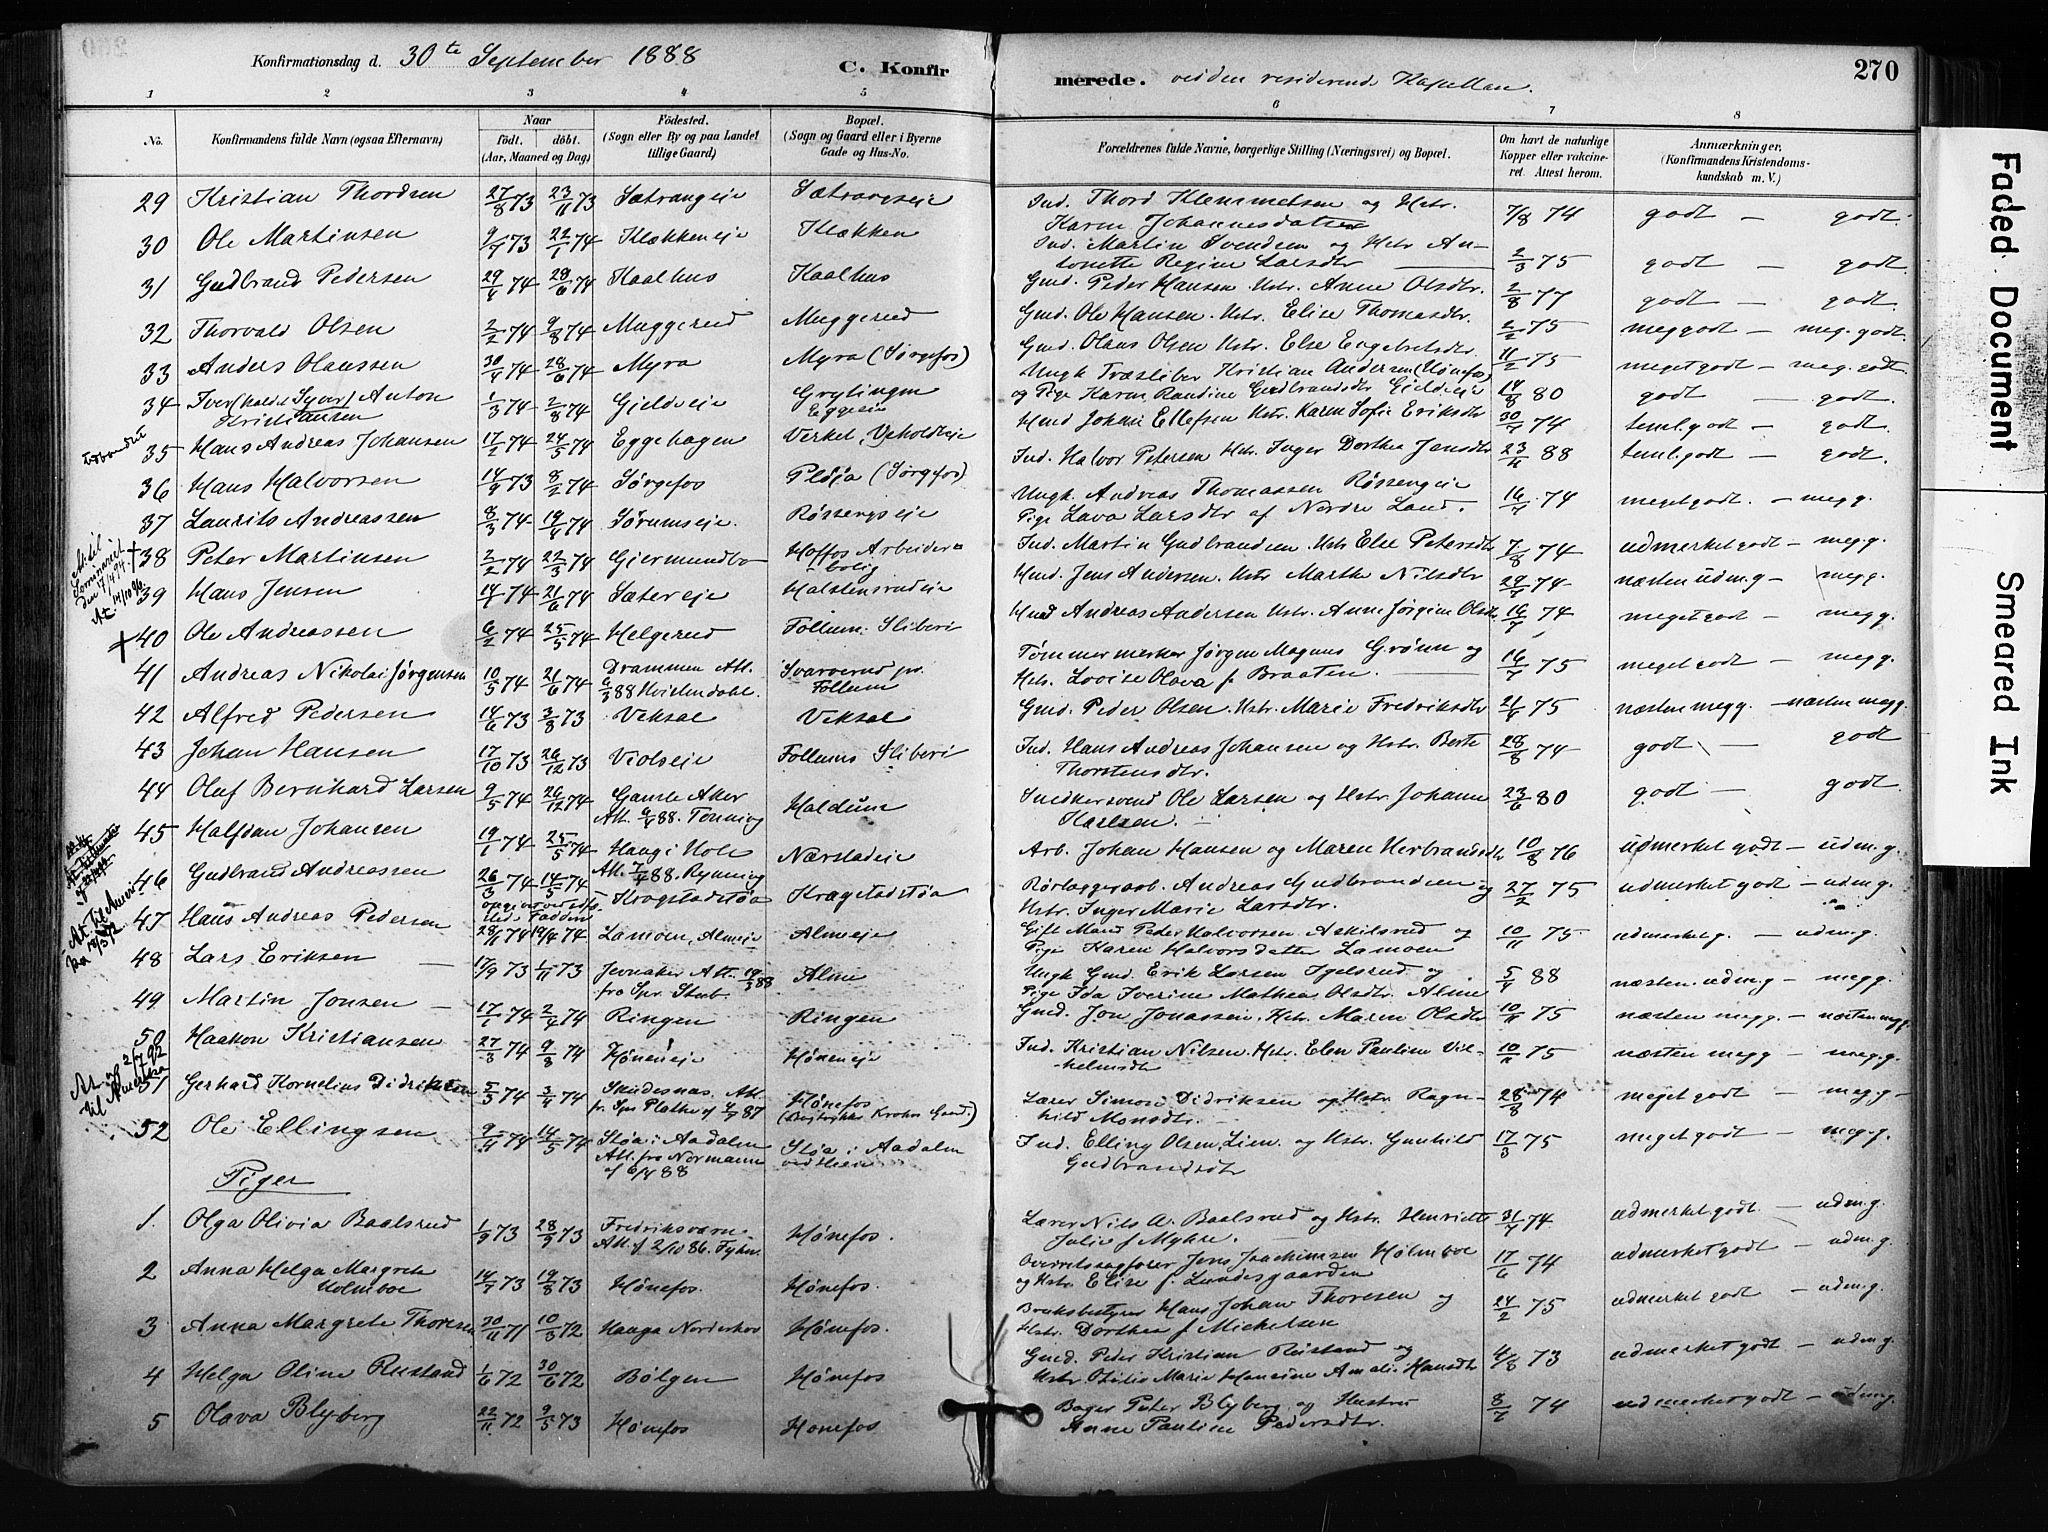 Konfirmationsdag d. 30te September 1888
C. Konfirmerede. ved den residerende Kapellan.
270
1 2 3 4 5 6 7 8
No. Konfirmandens fulde Navn (ogsaa Efternavn) Naar født. døbt. (Aar, Maaned og Dag) Fødested. (Sogn eller By og paa Landet tillige Gaard) Bopæl. (Sogn og Gaard eller i Byerne Gade og Hus-No. Forældrenes fulde Navne, borgerlige Stilling (Næringsvei) og Bopæl. Om havt de naturlige Kopper eller vakcineret. Attest herom. Anmærkninger. (Konfirmandens Kristendomskundskab m. V.)
29 Kristian Thordsen 27/8 73 23/11 73 Sætrangeie Sætrangseie Ind. Thord Klemmetsen og Hstr. Karen Johannesdatter 7/8 74 godt — godt.
30 Ole Martinsen 9/9 73 22/1 74 Klækkeneje Klækken Ind. Martin Svendsen og Hstr An-
tonette Regine Larsdtr 2/3 75 godt — godt.
31 Gudbrand Pedersen 29/4 74 28/6 74 Kaalhus Kaalhus Gmd. Peder Hansen Hstr. Anne Olsdtr. 2/8 77 godt — godt.
32 Thorvald Olsen 2/2 74 9/8 74 Muggerud Muggerud Gmd. Ole Hansen. Hstr. Elise Thomasdtr. 2/2 75 meg godt — meg. godt.
33 Anders Olaussen 30/4 74 28/6 74 Myra Myra (Sørgefos) Gmd. Olaus Olsen Hstr. Else Engebretsdtr. 11/2 75 meget godt — meg. godt.
34 Iver (kaldt Syver) Anton
Kristiansen 1/3 74 2/8 74 Gjeldseie Grytingen
Eggeeie Ungk Træsliber Kristian Andersen (Hønefos)
og Pige Karen Randine Gudbrandsdtr Gjeldseie 14/8 80 godt — godt.
35 Hans Andreas Johansen 17/2 74 24/5 74 Eggehagen Verket, Veholdteie Hmd Johan Ellefsen Hstr. Karen Sofie Eriksdtr 30/7 74 teml. godt — godt.
36 Hans Halvorsen 14/9 73 8/2 74 Sørgefos Pløja (Sørgfos) Ind. Halvor Petersen Hstr. Inger Dorthea Jensdtr 23/4 88 teml. godt — godt.
37 Laurits Andreassen 8/3 74 19/4 74 Sørumseie. Røssengseie Ungk. Andreas Thomassen Røssengeie
Pige Lava Larsdtr af Nordre Land. 16/7 74 meget godt. — meg g.
38 Peter Martinsen 2/2 74 22/3 74 Gjermundbo Hoffos Arbeider-
bolig Ind. Martin Gudbrandsen. Hstr Else Petersdtr 7/8 74 udmerket godt — meg g.
A. til Seminariet den 17/7 94. At. 14/10 96.
39 Hans Jensen 14/4 74 21/6 74 Sætereie Halstensrudeie Hmd. Jens Andersen. Hstr Marthe Nilsdtr 29/7 74 næsten udm. g — meg g.
40 Ole Andreassen 6/2 74 25/5 74 Helgerud Follum Sliberi Hmd Andreas Andersen Hstr. Anne Jørgine Olsdtr 16/7 74 meget godt — meg g.
41 Andreas Nikolai Jørgensen 10/5 74 21/6 74 Drammen Att.
6/3 88 Hvistendahl. Svarverud pr.
Follum Tømmermerker Jørgen Magnus Grønn og
Hstr. Lovise Olava f. Braaten. 16/7 75 meget godt — meg g.
42 Alfred Pedersen 14/6 73 3/8 73 Veksal Veksal Gmd. Peder Olsen. Hstr. Marie Fredriksdtr 21/4 75 næsten meg g. — næsten meg g.
43 Johan Hansen 17/10 73 26/12 73 Violseie Follums Sliberi Ind. Hans Andreas Johansen og Hstr. Berte
Thorstensdtr. 28/8 74 godt — godt
44 Oluf Bernhard Larsen 9/5 74 26/12 74 Gamle Aker
Att. 9/4 88. Tønning Haldum Snedkersvend Ole Larsen og Hstr Johanne
Karlsen. 23/6 80 godt — godt
45 Halfdan Johansen 19/1 74 25/5 74 Haug i Hole
Att. 7/4 88. Rynning Nærstadeie Arb. Johan Hansen og Maren Herbrandsdtr 10/8 76 udmerket godt — udm. g.
46 Gudbrand Andreassen 26/3 74 14/5 74 Kragstadstøa Kragstadstøa Rørlæggerarb. Andreas Gudbrandsen og
Hstr. Inger Marie Larsdtr. 27/2 75 udmerket godt — udm. g.
47 Hans Andreas Pedersen 28/1 74 19/4 74 Lamoen, Almeie Almeie Gift Mand Peter Halvorsen Askilsrud og
Pige Karen Halvorsdatter Lamoen 10/11 75 udmerket g. — udm. g.
At. til Amerika 18/3 92.
48 Lars Eriksen — 17/9 73 1/11 73 Jevnaker Att. 19/3 88
fra Spr. Stub. Alme Ungk Gmd. Erik Larsen Igelsrud og
Pige Ida Iverine Mathea Olsdtr. Alme 5/4 88 næsten. udm. g — meg g.
49 Martin Jonsen — 17/1 74 2/4 74 Ringen Ringen Gmd. Jon Jonassen. Hstr. Maren Olsdtr 10/11 75 næsten meg g. — næsten meg g.
50 Haakon Kristiansen 27/3 74 9/8 74 Høneneie Høneneie Ind. Kristian Nilsen. Hstr. Elen Pauline Vil-
helmsdtr 10/11 75 næsten meg g — meg. g.
At. af 2/7 92 til Amerika
51 Gerhard Kornelius Didriksen 5/3 74 3/4 74 Skudesnæs. Att.
fr. Spr Plathe af 4/7 87 Hønefos Lærer Simon Didriksen og Hstr. Ragn-
hild Monsdtr. 28/8 74 meget godt — meg. g.
52 Ole Ellingsen 9/4 74 14/5 74 Støa i Aadalen
Att. fra Normann
af 6/4 88 Støa i Aadalen
ved Heen Ind. Elling Olsen Lien. og Hstr. Gunhild
Gudbrandsdtr 17/3 75 meget godt — meg. g.
Piger
1. Olga Olivia Baalsrud 1/9 73 28/9 73 Fredriksværn
Att. f 2/10 86. Hønefos. Lærer Nils A. Baalsrud og Hstr. Henriette
Julie f Myhre. 31/7 74 udmerket godt. — udm. g.
2 Anna Helga Margrete
Holmboe 14/7 73 19/8 73 Hønefos. Hønefos. Overretssagfører Jens Joachimsen Holmboe
og Hstr. Elise f. Lundegaarden 17/6 74 udmerket godt — udm. g.
3 Anna Margrete Thoresen 20/11 71 10/3 72 Hauga Norderhov Hønefos. Bruksbestyrer Hans Johan Thoresen og
Hstr. Dorthea f Michelsen 24/2 75 udmerket godt — udm. g.
4 Helga Oline Rustand 1/6 72 30/6 72 Bølgen Hønefos Gmd. Peder Kristian Rustand og
Hstr. Otilie Marie Hansine Amalie Hansdtr 4/8 73 udmerket godt — udm. g.
5 Olava Blyberg 22/11 72 9/5 73 Hønefos Honefos Bager Peter Blyberg og Hustru
Anne Pauline Pedersdtr. 8/7 74 udmerket godt — udm. g.
Faded Document
Smeared Ink